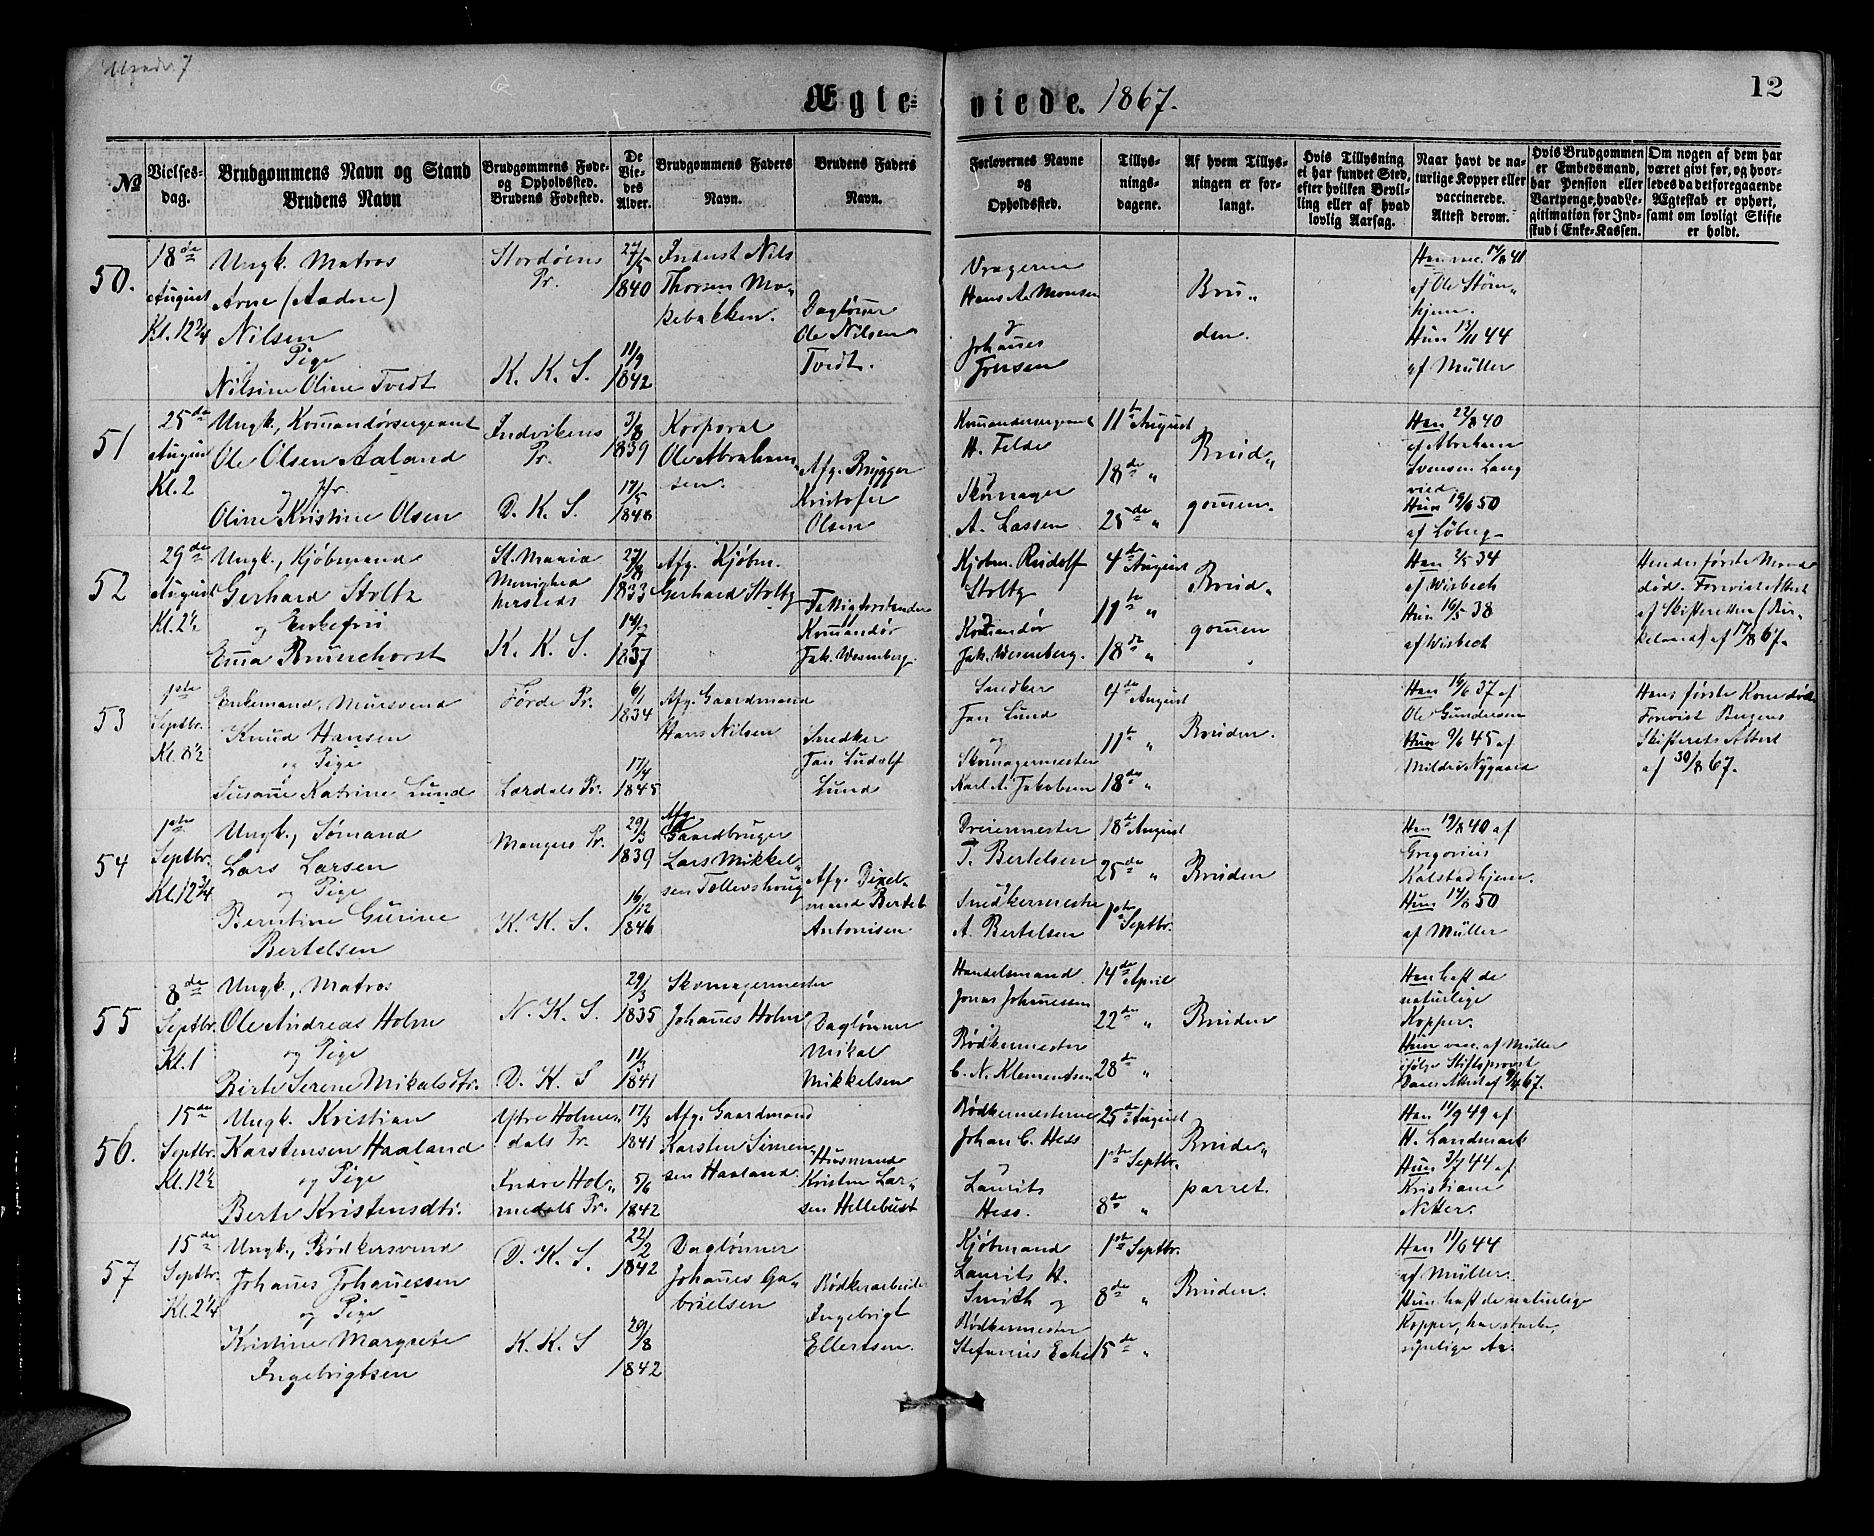 Ægte= viede. 1867. 12
№
Vielses-
dag.
Brudgommens Navn og Stand
Brudens Navn
Brudgommens Føde-
og Opholdssted.
Brudens Fødested.
De
Vie-
des
Alder.
Brudgommens Faders
Navn.
Brudens Faders
Navn.
Forlovernes Navne
og
Opholdssted.
Tillys-
nings-
dagene.
Af hvem Tillys-
ningen er for-
langt.
Hvis Tillysning
ei har fundet Sted,
efter hvilken Bevil-
ling eller af hvad
lovlig Aarsag.
Naar havt de na-
turlige Kopper eller
vaccinerede.
Attest derom.
Hvis Brudgommen
er Embedsmand,
har Pension eller
Vartpenge, hvad Le-
gitimation for Ind-
skud i Enke-Kassen.
Om nogen af dem har
været givt før, og hvor-
ledes da det foregaaende
Ægteskab er ophørt,
samt om lovligt Skifte
er holdt.
50.
18de
August
Kl. 12 3/4
Ungk. Matros
Arne (Aadne)
Nilsen
Pige
Nilsine Oline Tvedt
Stordøens
Pr.
K. K. S.
27/5
1840
11/9
1842
Inderst Nils
Thorsen
Dagløner
Ole Nilsen
Tvedt.
Vragerne
Hans A. Monsen
Johanes
Jonsen
Bru„
den.
Han vac. 17/8 41
af Ole Støm„
hjem.
Hun 13/11 44
af Müller
51
25de
August
Kl. 2
Ungk., Komandørsergeant
Ole Olsen Aaland
og Jfr.
Oline Kristine Olsen
Indvikens
Pr.
D. K. S.
3/8
1839
17/5
1848
Korporal
Ole Abraham„
sen.
Afg. Brygger
Kristofer
Olsen
Komandersergeant
H. Tilde
Skomager
A. Lassen
11te August
18de „
25de „
Brud„
gomen.
Han 22/8 40
af Abraham
Svensen Lang
vied
Hun 19/6 50
af Løberg
52
29de
August
Kl. 2½
Ungk., Kjøbmand
Gerhard Stoltz
og Enkefru
Ema Brunchorst
St. Maria
Menighed
hersteds
K. K. S.
27/8
1833
14/7
1837
Afg. Kjøbm.
Gerhard Stoltz
Fattigforstander
Komandør
Jak. Wesenberg
Kjøbm. Rudolf
Stoltz
Komandør
Jak. Wesenberg.
4de August
11te „
18de „
Brud„
gomen
Han 2/5 34
af Wisbech
Hun 16/5 38
af Wisbech
Hendes første Mand
død. Forevist Attest
af Skifteretten
af 17/8 67.
53
1ste
Septbr.
Kl. 8½
Enkemand, Mursvend
Knud Hansen
og Pige
Susane Katrine Lund
Førde Pr.
Lærdals Pr.
6/1
1834
17/4
1845
Afg. Gaardmand
Hans Nilsen
Snedker
Jan Ludolf
Lund
Snedker
Jan Lund
og
Skomagermester
Karl A. Jakobsen
4de August
11te „
18de „
Bruden.
Han 16/6 37 af
Ole Gundersen
Hun 9/6 45 af
Milder Nygaard
Hans første Kone død.
Forevist Bergens
Skifterets Attest
af 30/8 67.
54
1ste
Septbr.
Kl. 12 3/4
Ungk., Sømand
Lars Larsen
og Pige
Berntine Gurine
Bertelsen
Mangers Pr.
K. K. S.
29/3
1839
16/12
1846
Afg.
Gaardbruger
Lars Mikkel„
sen
Afg. Pixel„
mand Bertel
Antonisen
Dreiermester
T. Bertelsen
og
Snedkermester
A. Bertelsen
18de August
25de „
1ste Septbr.
Bruden
Han 19/8 40 af
Gregorius
Kolstadhjem.
Hun 14/6 50
af Müller
55
8de
Septbr.
Kl. 1
Ungk., Matros
Ole Andreas Holm
og Pige
Birte Serene Mikalsdtr.
N. K. S.
D. K. S
29/3
1835
11/3
1841
Skomagermester
Johanes Holm
Dagløner
Mikal
Mikkelsen
Handelsmand
Jonas Johanessen
Bødkermester
C. N. Klementsen
14de April
22de „
28de „
Bruden
Han haft de
naturlige
Kopper.
Hun vac. af Müller
ifølge Stiftsprovst
Daaes Attest af 9/4 67.
56.
15de
Septbr.
Kl. 12½
Ungk. Kristian
Karstensen Haaland
og Pige
Berte Kristensdtr.
Ytre Holmen„
dals Pr.
Indre Hol„
medals Pr.
17/3
1841
5/6
1842
Afg. Gaardmand
Karsten Simen
sen Haaland
Husmand
Kristen Lar„
sen Hellebust
Bødkermesterne
Johan C. Hess
Laurits
Hess.
25de August
1ste Septbr.
8de „
Brude„
parret.
Han 11/9 49 af
H. Landmark
Hun 3/7 44 af
Kristiane
Nitter.
57
15de
Septbr.
Kl. 2¼
Ungk., Bødkersvend
Johanes Johanessen
og Pige
Kristine Margrete
Ingebrigtsen
D. K. S.
K. K. S
22/2
1842
29/8
1842
Dagløner
Johanes Ga„
brielsen
Bødkerarbeider
Ingebrigt
Ellertsen.
Kjøbmand
Laurits H.
Smith og
Bødkermester
Stefanius Eche
1ste Septbr.
8de „
15de „
Bruden.
Han 11/6 44
af Müller.
Hun haft de naturlige
Kopper, har stærke,
synlige Ar.